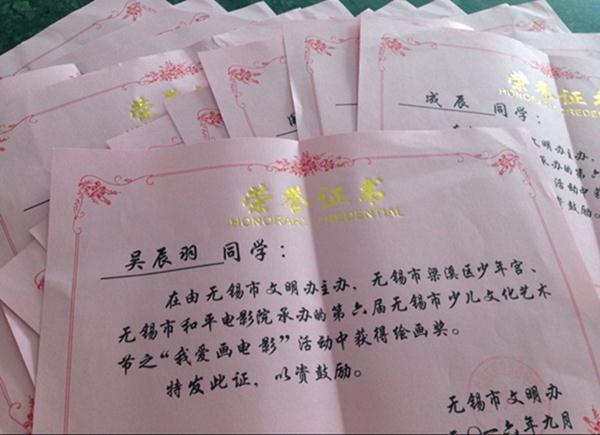 荣誉证书
HONORARY CREDENTIAL
吴辰羽 同学:
在由无锡市文明办主办,无锡市梁溪区少年宫、
无锡市和平电影院承办的第六届无锡市少儿文化艺术
节之“我爱画电影”活动中获得绘画奖。
特发此证,以资鼓励。
无锡市文明办
二〇一六年九月
荣誉证书
成辰 同学:
文明办主办,
活动中获得
资鼓励。